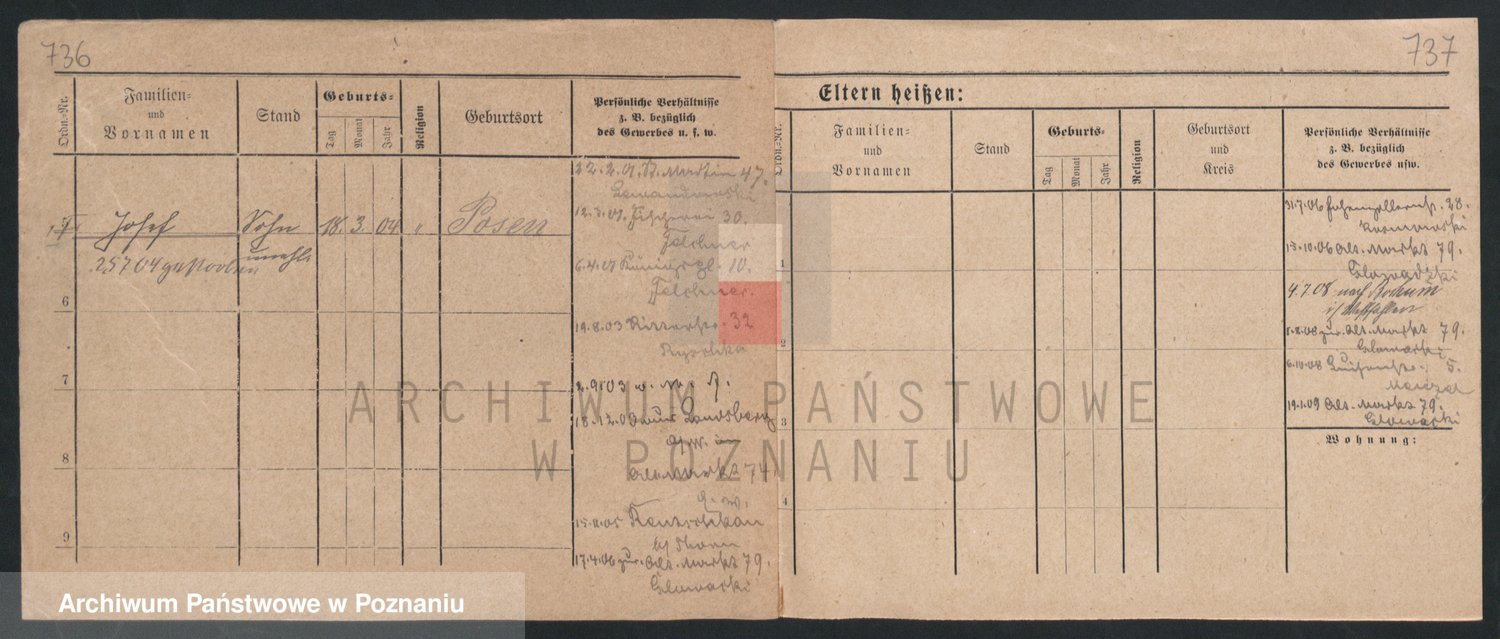 736
Ordn.-Nr.
Familien-
und
Vornamen
Stand
Geburts-
Tag
Monat
Jahr
Religion
Geburtsort
Persönliche Verhältnisse
z. B. bezüglich
des Gewerbes u. s. w.
Josef
Sohn
18. 3. 04
"
Posen
25 7 04 gestorben
unehl
6
7
8
9
22. 2. 01. St. Martin 47.
Lewandowski
12.3.01. Fischerei 30.
Felchner
6.4.01 Königspl. 10.
Felchner.
19.8.03 Ritterstr. 32
2.9.03
18.12.03 aus Landsberg
Alt. Markt 74.
15.11.05
b/ Thorn
17.4.06 zur. Alt. Markt 79.
737
Eltern heißen:
Ordn.-Nr.
Familien-
und
Vornamen
Stand
Geburts-
Tag
Monat
Jahr
Religion
Geburtsort
und
Kreis
Persönliche Verhältnisse
z. B. bezüglich
des Gewerbes usw.
1
2
3
4
31.7.06 Hohenzollernst. 28.
15.10.06 Alt. Markt 79.
4.7.08 nach Bochum
i/ Westfalen
zur. Alt. Markt 79.
6.10.08 5.
19.1.09 Alt. Markt 79.
Wohnung:
ARCHIWUM PAŃSTWOWE
W POZNANIU
Archiwum Państwowe w Poznaniu